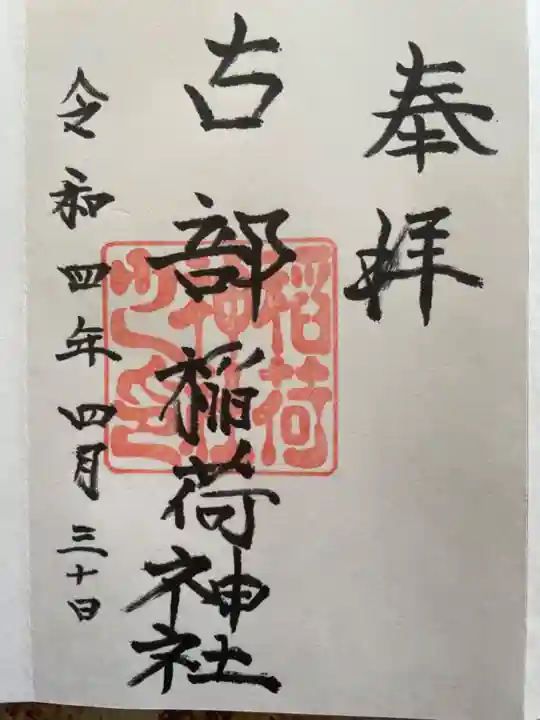 奉拝
古部稲荷神社
令和四年四月三十日
稲荷